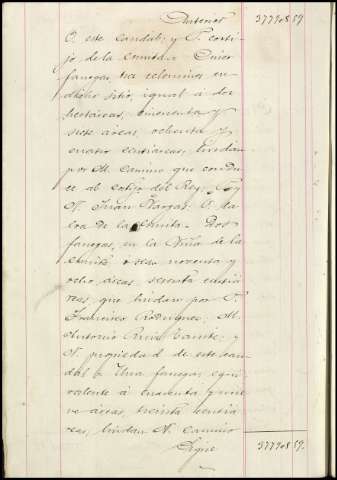 Anterior 377908 59
O. este caudal; y P. corti-
jo de la Ermita. Cinco
fanegas, tres celemines en
dicho sitio, igual á dos
hectáreas, cincuenta y
siete áreas, ochenta y
cuatro centiáreas, lindan
por M. camino que condu-
ce al cortijo del Rey; P. y
N. Juan Vargas; O.
de la Ermita. Dos
fanegas, en la Viña de la
Ermita o sean noventa y
ocho áreas, sesenta centiá-
reas, que lindan por P.
Francisco Rodriguez; M.
Antonio Ruiz Benite; y
N. propiedad de este cau-
dal. Una fanega, equi-
valente á cuarenta y nue-
ve áreas, treinta centiá-
reas, lindan N. camino
Sigue 377908 59.